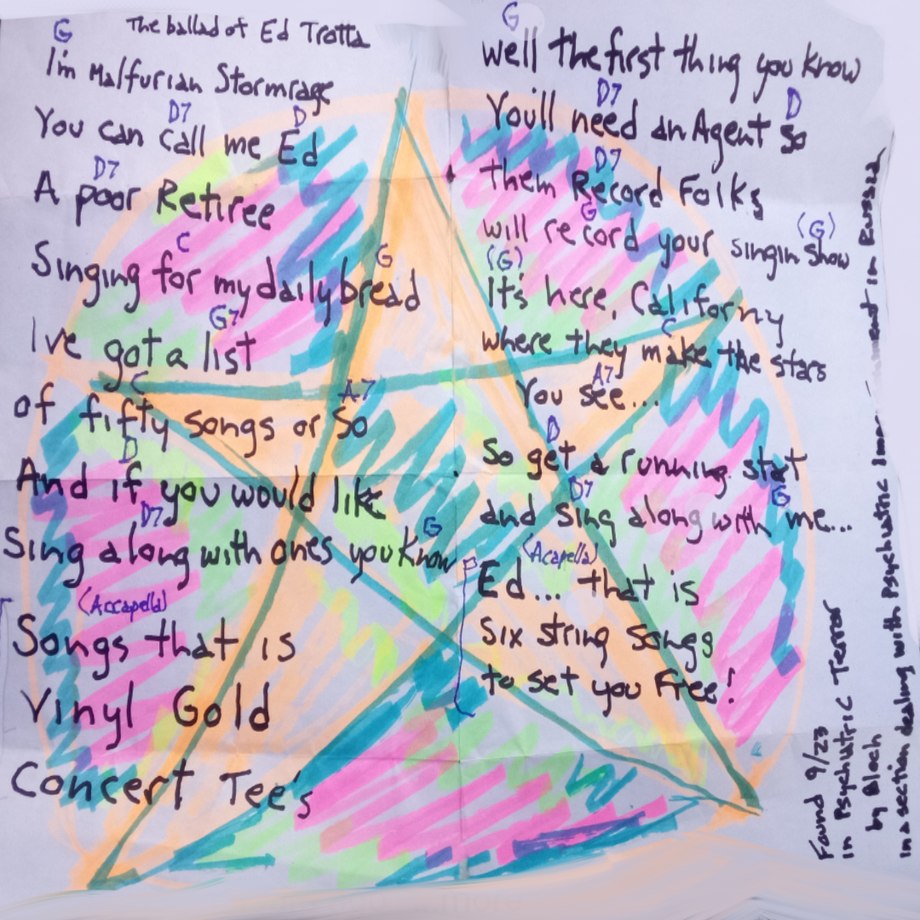 The ballad of Ed Trotta
G
I'm Malfurian Stormrage
D7 D
You can call me Ed
D7
A poor Retiree
C G
Singing for my daily bread
G7
I've got a list
C A7
of fifty songs or So
D
And if you would like
D7 G
Sing along with ones you know
(Accapella)
Songs that is
Vinyl Gold
Concert Tee's
G
well the first thing you know
D7 D
You'll need an Agent so
D7
them Record Folks
G (G)
will record your singin show
(G)
It's here, Californy
C
where they make the stars
A7
You see...
D
So get a running start
D7 G
and sing along with me...
(Acapella)
Ed... that is
Six string Songs
to set you Free!
Found 9/23
in Psychiatric Terror
by Bloch
in a section dealing with Psychiatric in Russia